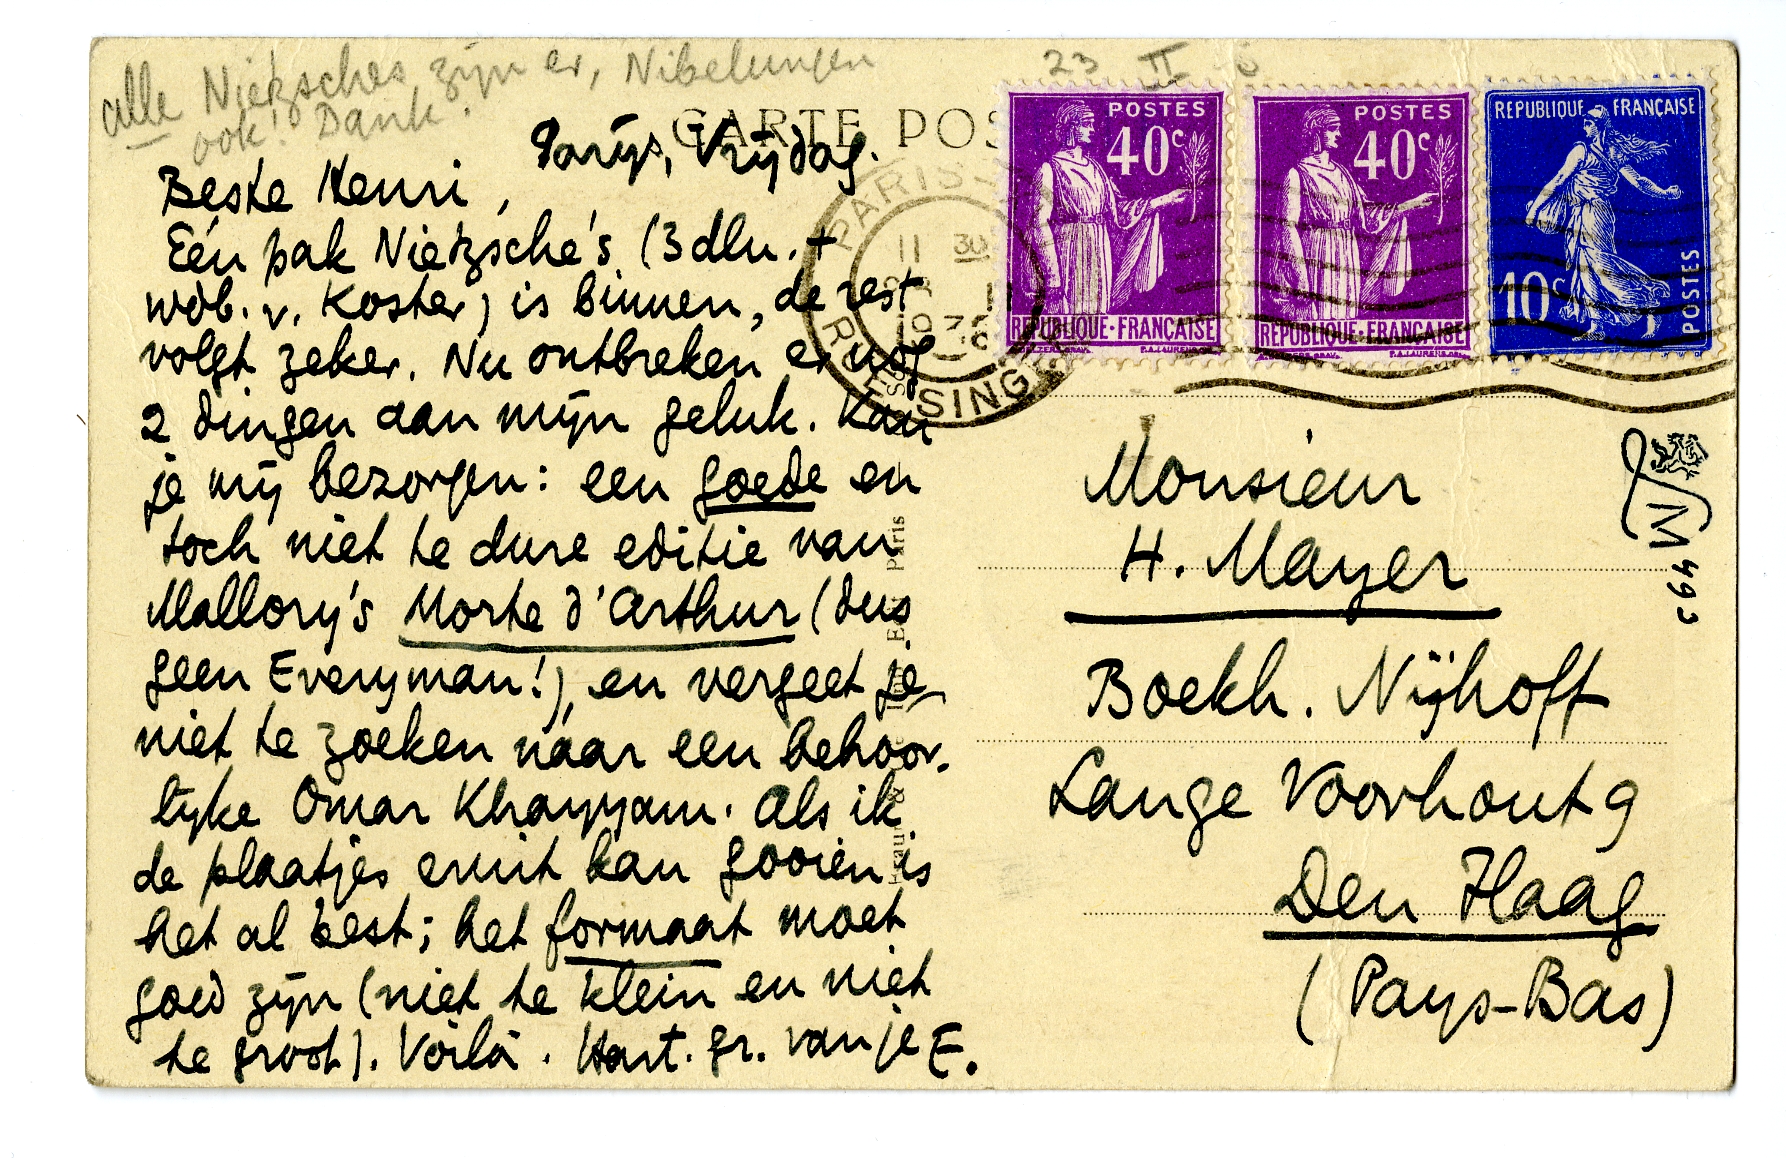 alle Nietzsches zijn er, Nibelungen
ook! Dank.
23 II
CARTE POS
Parijs, Vrijdag.
Beste Henri,
Eén pak Nietzsche's (3 dln. +
wdb. v. Koster) is binnen, de rest
volgt zeker. Nu ontbreken er nog
2 dingen aan mijn geluk. Kan
je mij bezorgen: een goede en
toch niet te dure editie van
Mallory's Morte d'Arthur (dus
geen Everyman!), en vergeet je
niet te zoeken naar een behoor-
lijke Omar Khayyam. Als ik
de plaatjes eruit kan gooien is
het al best; het formaat moet
goed zijn (niet te klein en niet
te groot). Voilà. Hart. gr. van je E.
POSTES
40c
REPUBLIQUE·FRANÇAISE
POSTES
40c
REPUBLIQUE·FRANÇAISE
REPUBLIQUE FRANÇAISE
10c
POSTES
PARIS
11 30
SING
Paris
Monsieur
H. Mayer
Boekh. Nijhoff
Lange Voorhout 9
Den Haag
(Pays-Bas)
M 492